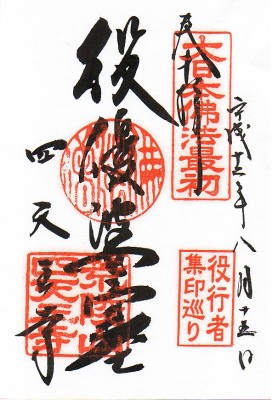 奉拝
大日本佛法最初
平成十三年八月十五日
役行者
集印巡り
役優婆塞
四天王寺